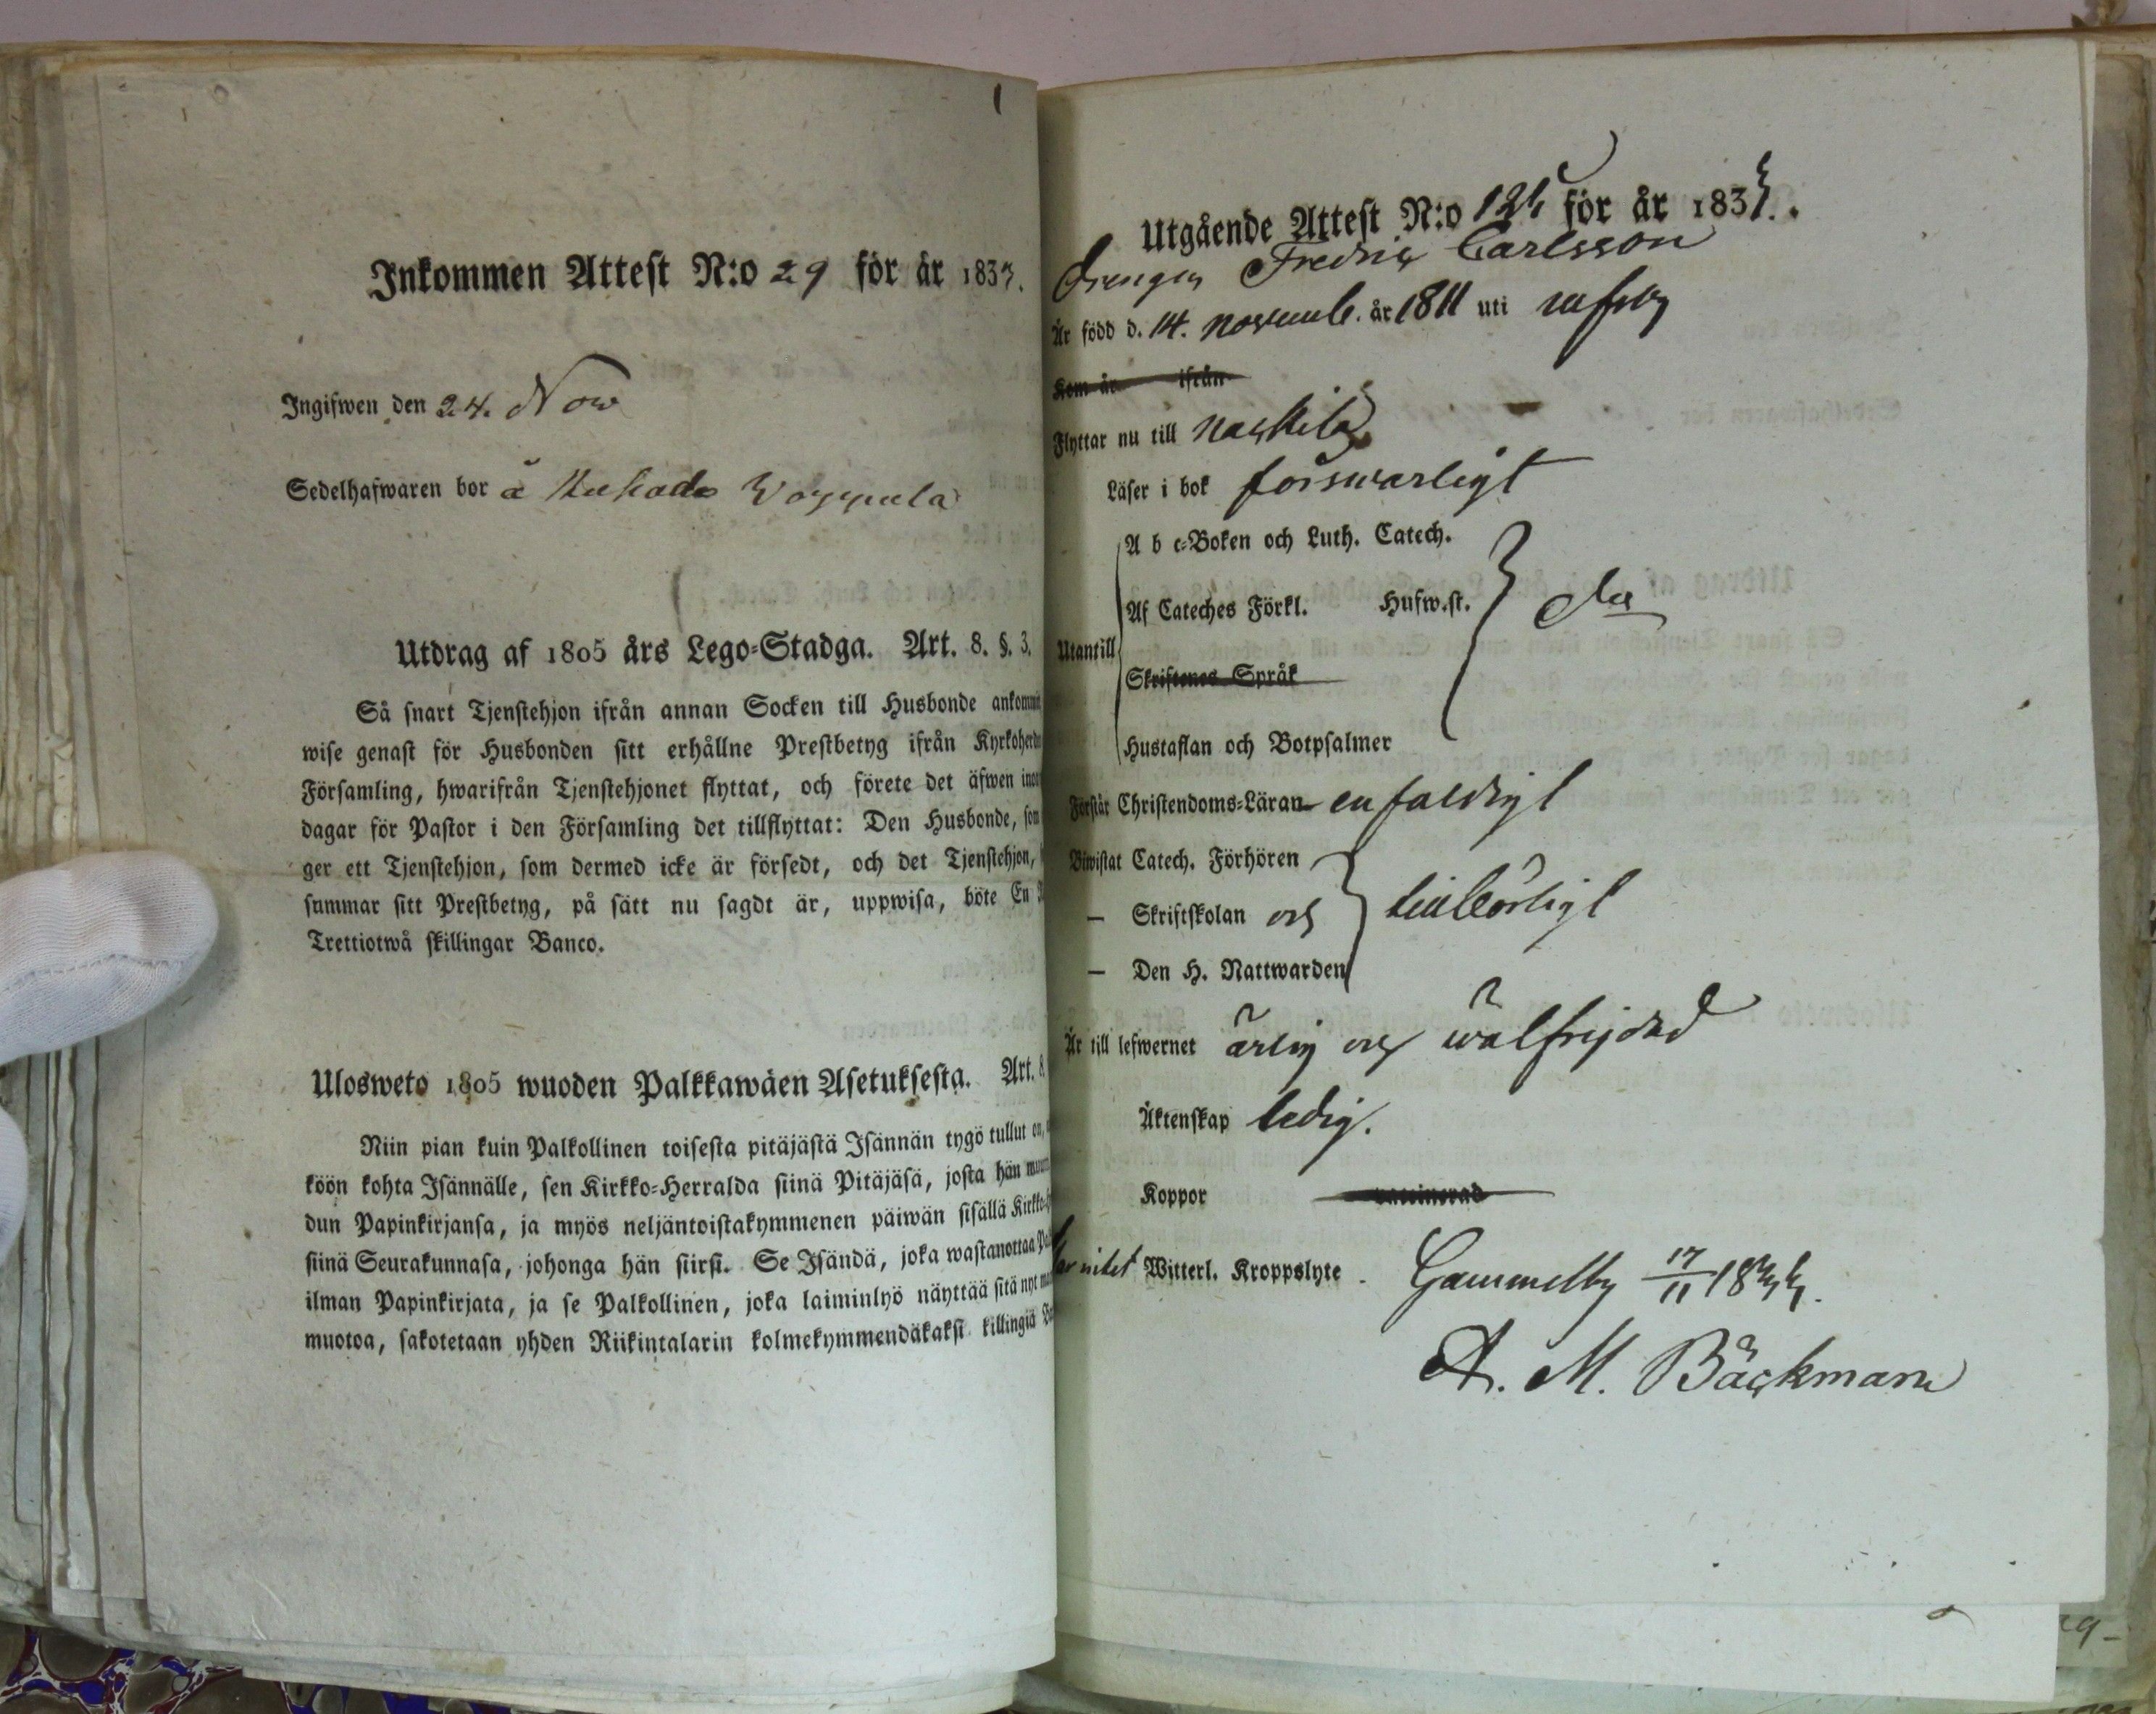 Inkommen Attest N:o 29 för år 1837.
Ingifwen den 24. Now
Sedelhafwaren bor å
Utdrag af 1805 års Lego-Stadga. Art. 8. §. 3.
Så snart Tjenstehjon ifrån annan Socken till Husbonde
wise genast för Husbonden sitt erhållne Prestbetyg ifrån
Församling, hwarifrån Tjenstehjonet flyttat, och förete det äfwen
dagar för Pastor i den Församling det tillflyttat: Den Husbonde,
ger ett Tjenstehjon, som dermed icke är försedt, och det Tjenstehjon,
summar sitt Prestbetyg, på sätt nu sagdt är, uppwisa, böte En
Trettiotwå skillingar Banco.
Ulosweto 1805 wuoden Palkkawäen Asetuksesta. Art. 8.
Niin pian kuin Palkollinen toisesta pitäjästä Isännän tygö tullut on,
köön kohta Isännälle, sen Kirkko-Herralda siinä Pitäjäsä, josta hän
dun Papinkirjansa, ja myös neljäntoistakymmenen päiwän sisällä
siinä Seurakunnasa, johonga hän siirsi. Se Isändä, joka wastanottaa
ilman Papinkirjata, ja se Palkollinen, joka laiminlyö näyttää sitä nyt
muotoa, sakotetaan yhden Riikintalarin kolmekymmendäkaksi killingiä
Utgående Attest N:o för år 183
Drengen Fredric Carlsson
Är född d. 14. novemb. år 1811 uti
Kom år ifrån
Flyttar nu till
Läser i bok förswarligt
A b c-Boken och Luth. Catech.
Af Cateches Förkl. Hufw.st.
Utantill
Skriftenes Språk
Hustaflan och Botpsalmer
Förstår Christendoms-Läran enfaldigt
Biwistat Catech. Förhören
— Skriftskolan och tillbörligt
— Den H. Nattwarden
Är till lefwernet ärlig och wälfrejdad
Äktenskap ledig.
Koppor vaccinerad
intet Witterl. Kroppslyte. Gammelby 17/11 18
A. M. Bäckman